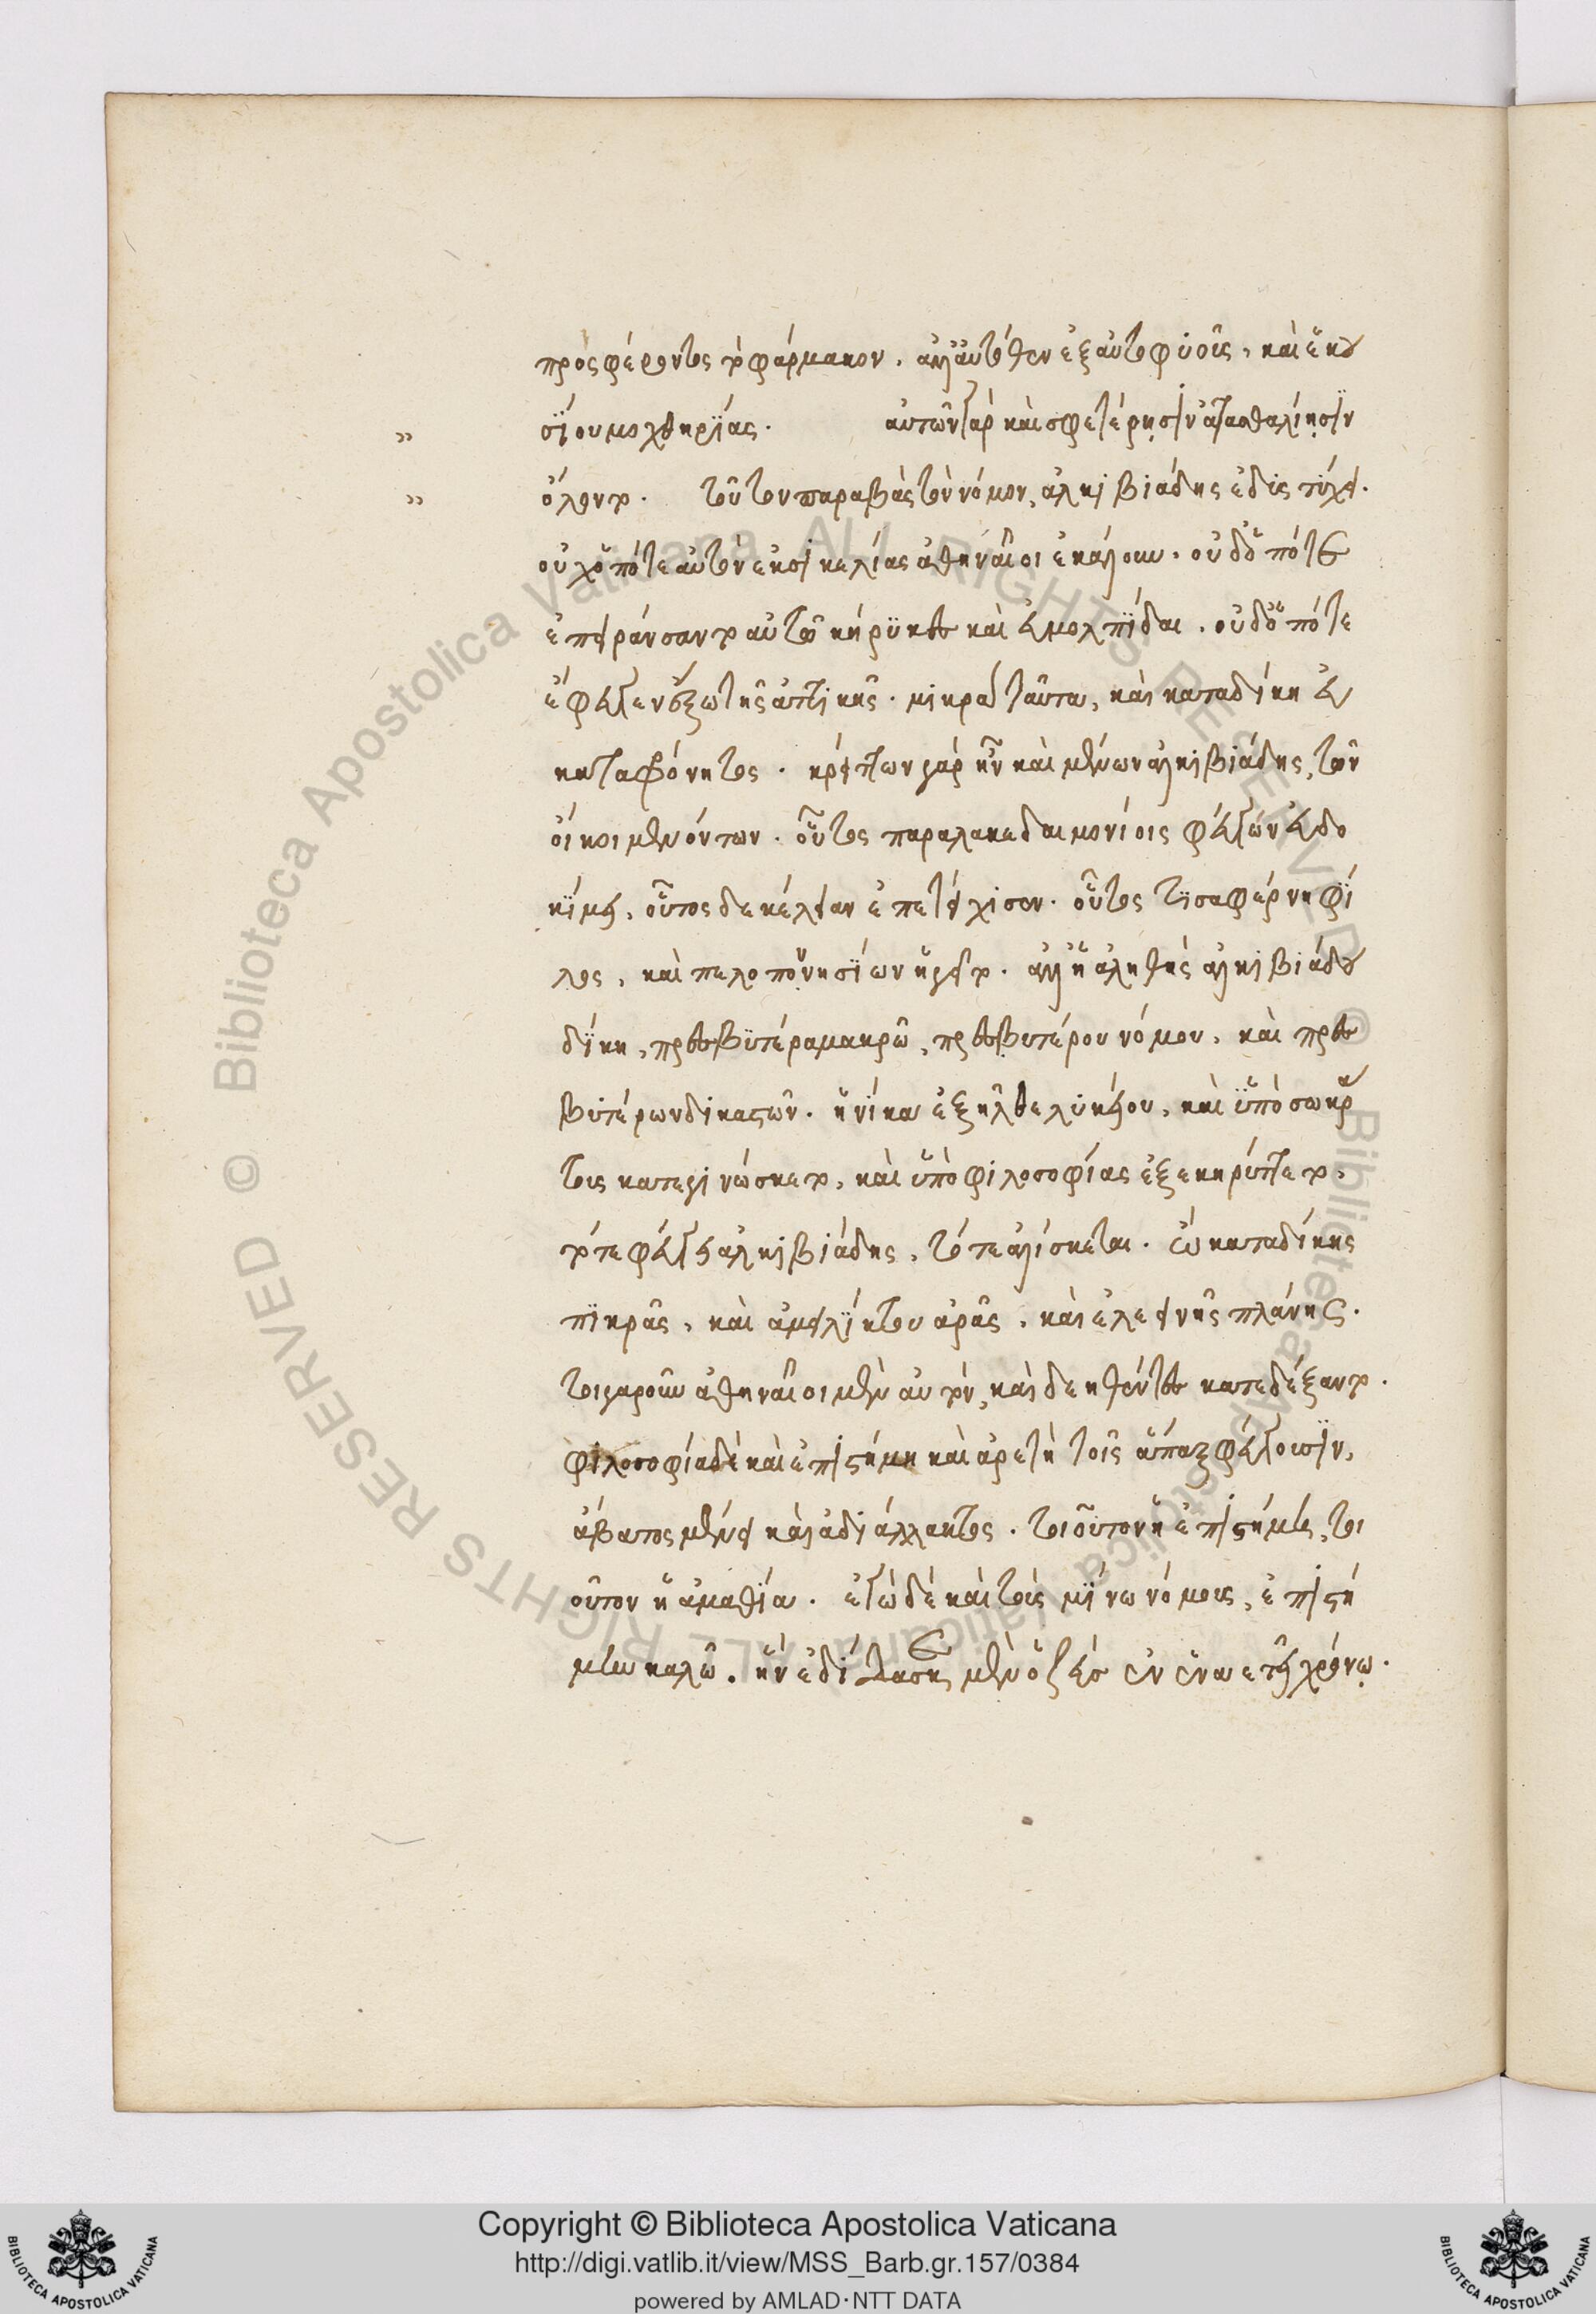 προσφέροντος τὸ φάρμακον. ἀλλ' αὐτόθεν ἐξ αὐτοφυοῦς, καὶ ἑκου
σίου μοχθηρίας. αὐτῶν γὰρ καὶ σφετέρησιν ἀτασθαλίησιν
ὄλοντο. τοῦτον παραβὰς τὸν νόμον, ἀλκιβιάδης ἐδυστύχει.
οὐχ ὅποτε αὐτὸν ἐκ σικελίας ἀθηναῖοι ἐκάλουν. οὐδ' ὁπότε
ἐπηράσαντο αὐτῷ κήρυκες καὶ εὐμολπίδαι. οὐδ' ὁπότε
ἔφευγεν ἔξω τῆς ἀττικῆς. μικρὰ ταῦτα, καὶ καταδίκη εὐ
καταφρόνητος. κρείττων γὰρ ἦν καὶ φεύγων ἀλκιβιάδης, τῶν
οἴκοι μενόντων. οὗτος παρὰ λακεδαιμονίοις φεύγων εὐδο
κίμει, οὗτος δεκέλειαν ἐπετείχισεν. οὗτος τισαφέρνῃ φί
λος, καὶ πελοποννησίων ἡγεῖτο. ἀλλ' ἡ ἀληθὴς ἀλκιβιάδου
δίκη, πρεσβυτέρα μακρῷ, πρεσβυτέρου νόμου, καὶ πρεσ
βυτέρων δικαστῶν. ἡνίκα ἐξῆλθε λυκείου, καὶ ὑπὸ σωκρά
τους κατεγινώσκετο, καὶ ὑπὸ φιλοσοφίας ἐξεκηρύττετο,
τότε φεύγει ἀλκιβιάδης, τότε ἁλίσκεται. ὢ καταδίκης
πικρᾶς, καὶ ἀμειλίκτου ἀρᾶς, καὶ ἐλεεινῆς πλάνης.
τοιγαροῦν ἀθηναῖοι μὲν αὐτὸν, καὶ δεηθέντες κατεδέξαντο.
φιλοσοφία δὲ καὶ ἐπιστήμη καὶ ἀρετὴ τοῖς ἅπαξ φεύγουσιν,
ἄβατος μένει καὶ ἀδιάλλακτος. τοιοῦτον ἡ ἐπιστήμη, τοι
οῦτον ἡ ἀμαθία. ἐγὼ δὲ καὶ τοὺς μίνω νόμους, ἐπιστή
μην καλῶ. ἣν ἐδίδασκε μὲν ὁ ζεὺς ἐν ἐνναετεῖ χρόνῳ.
Copyright © Biblioteca Apostolica Vaticana
http://digi.vatlib.it/view/MSS_Barb.gr.157/0384
powered by AMLAD·NTT DATA